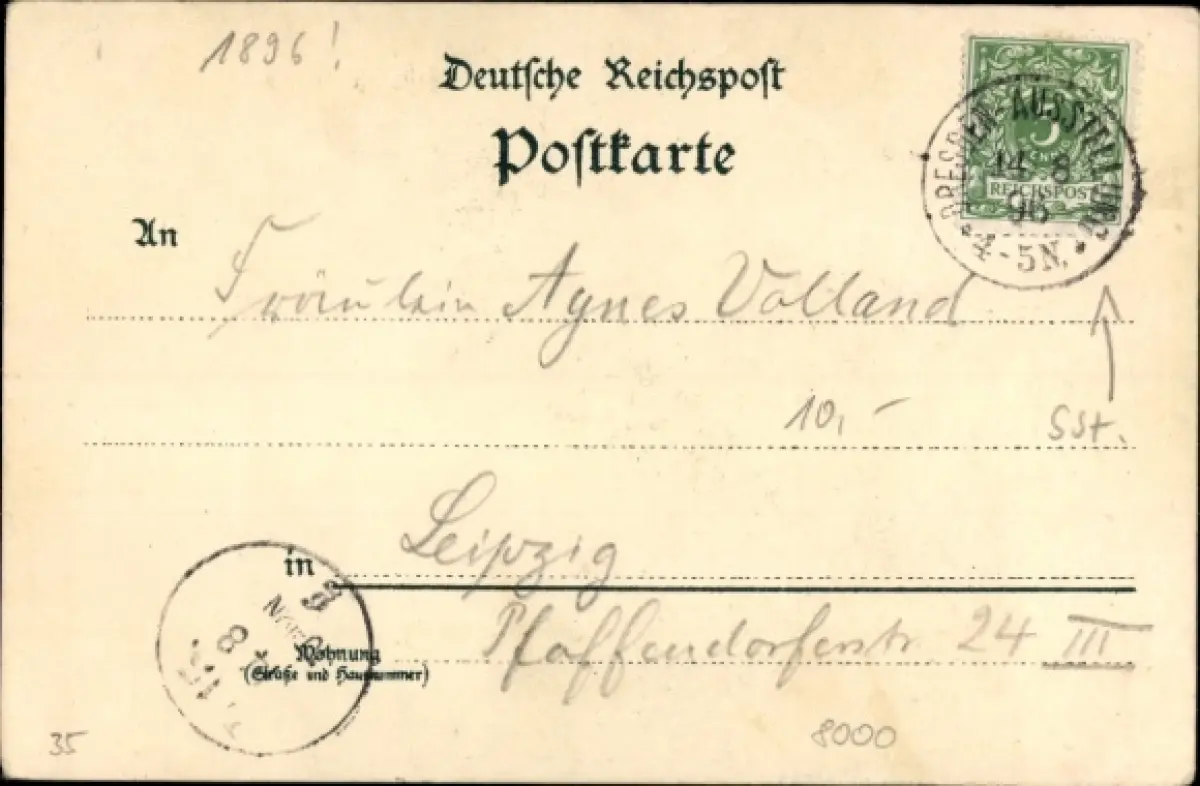 1896!
Deutsche Reichspost
Postkarte
DRESDEN-AUSSTELLUNG
5
14 8
REICHSPOST
96
4-5N.
An
Fräulein Agnes Volland
10,-
SSt.
Leipzig
in
Pfaffendorferstr. 24 III
8
Wohnung
(Straße und Hausnummer)
35
8000